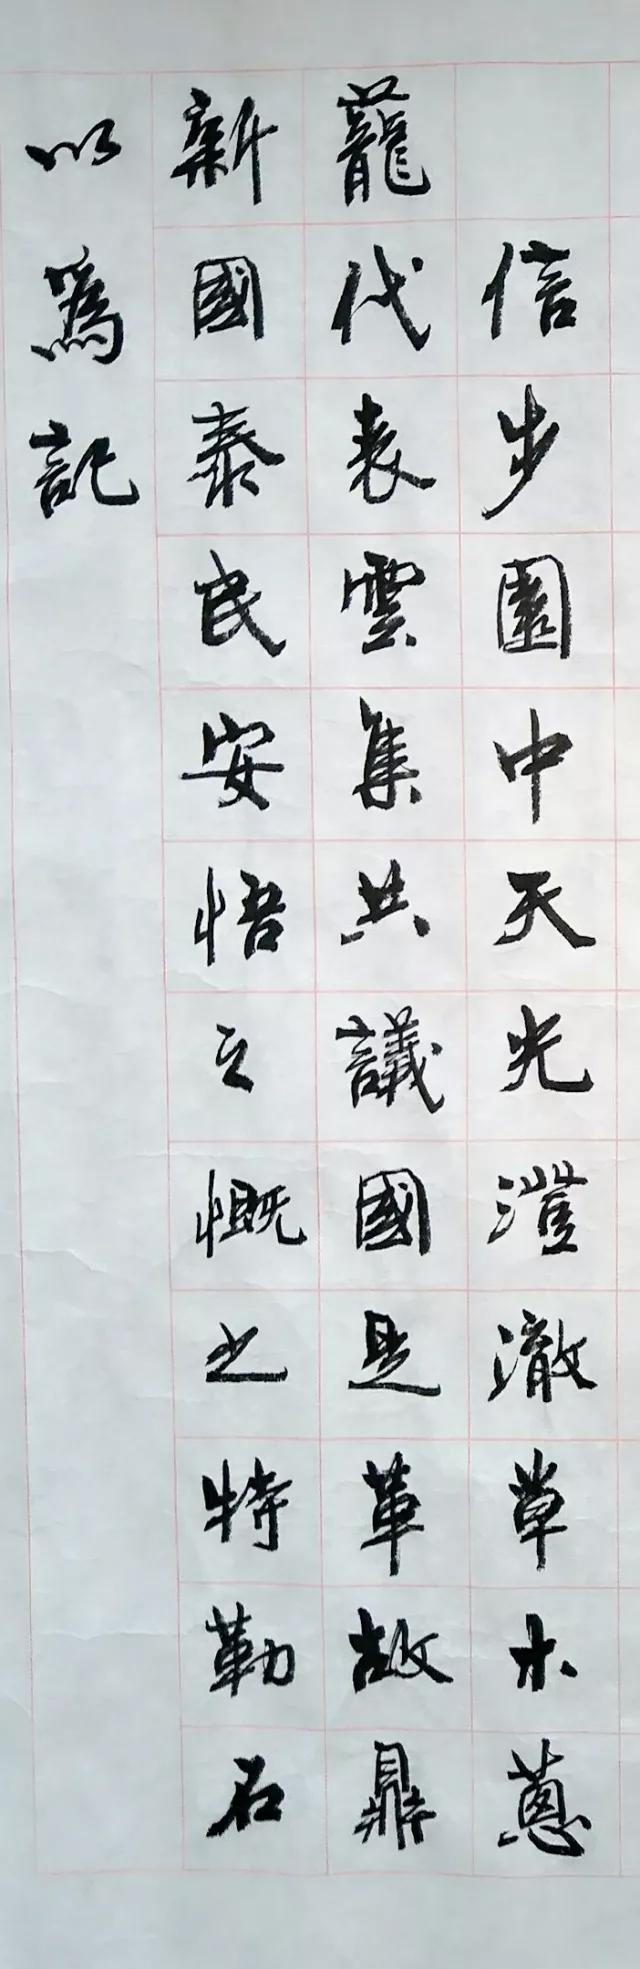 信步園中天光澄澈草木蔥
蘢代表雲集共議國是革故鼎
新國泰民安悟之慨之特勒石
以為記